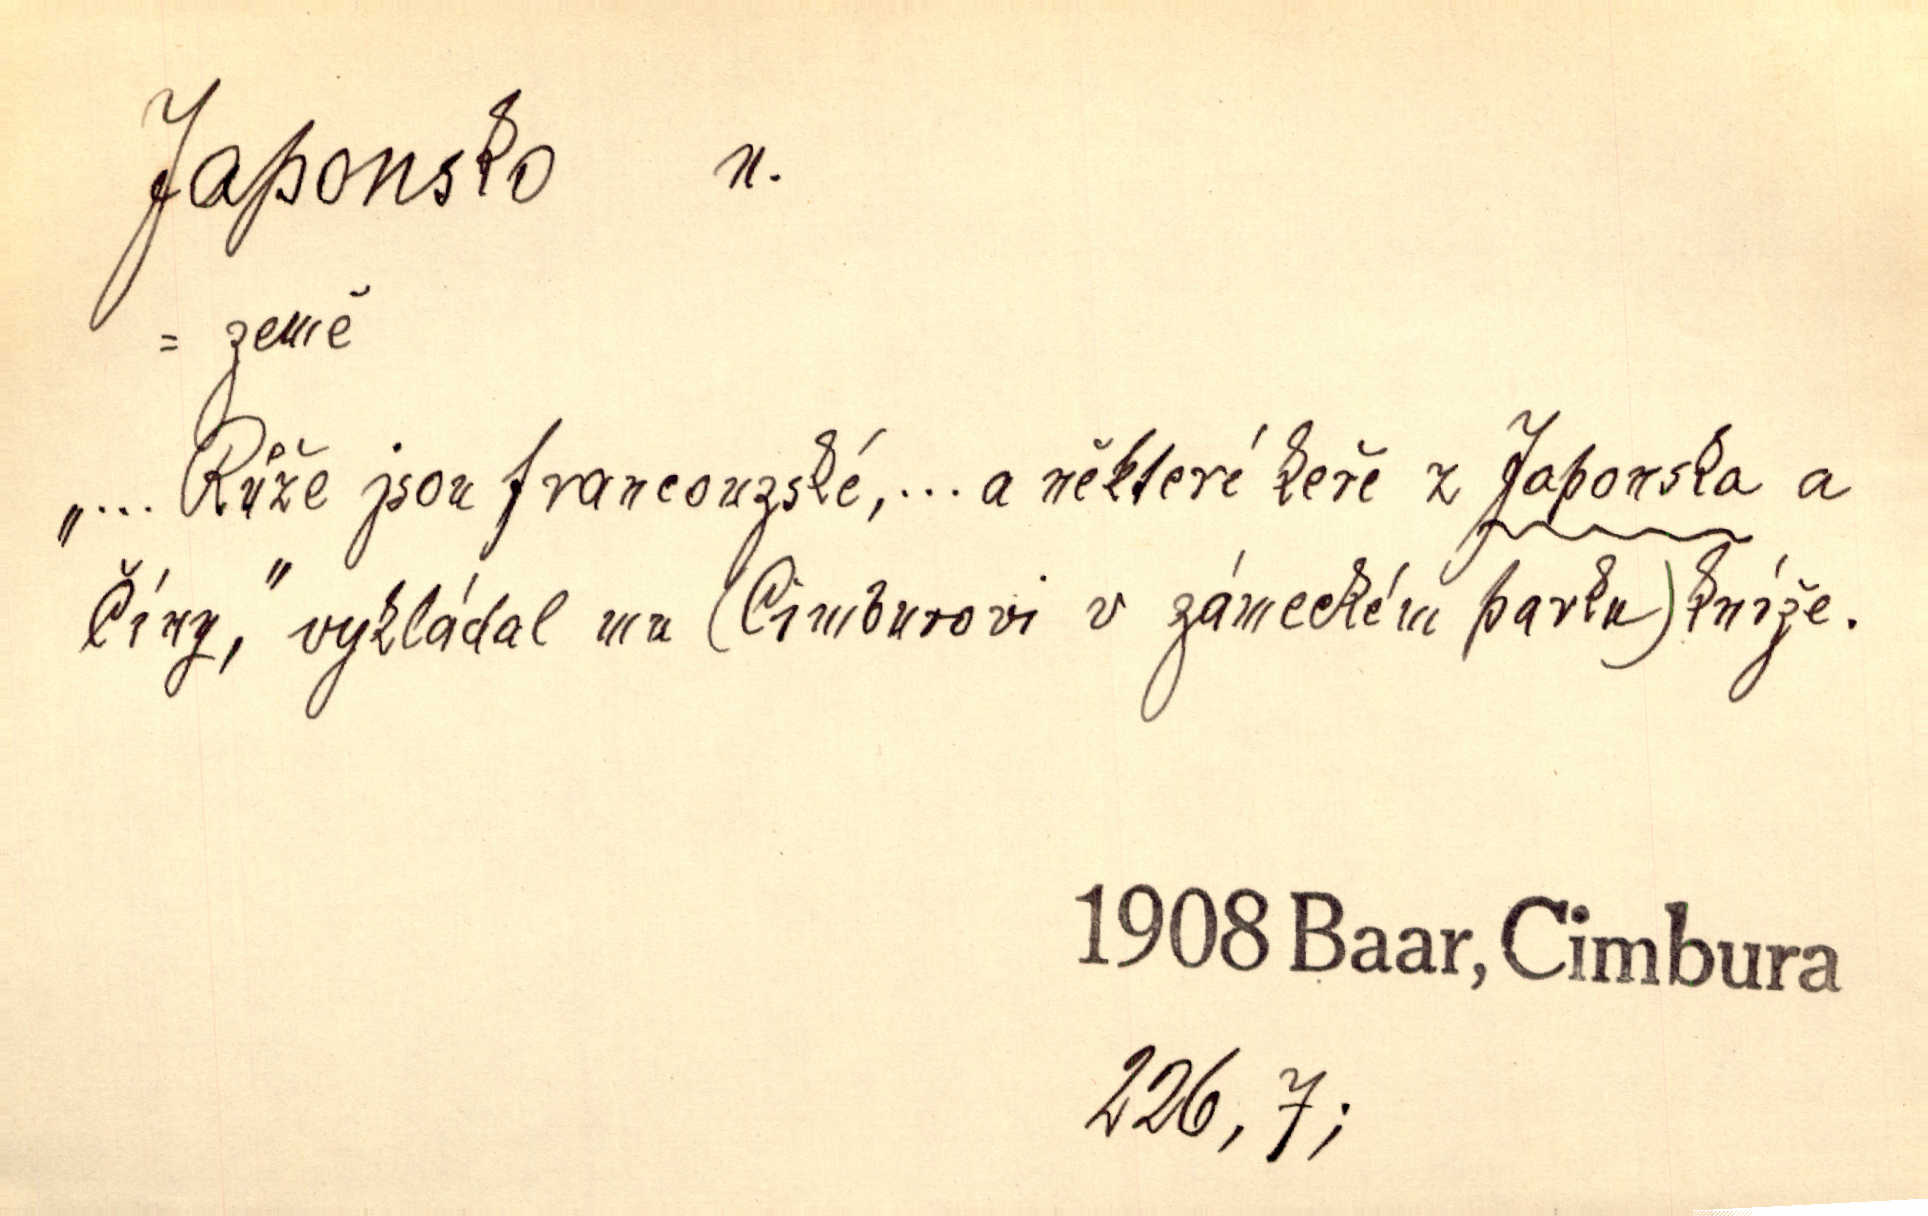 Japonsko n.
= země
„... Růže jsou francouzské, ... a některé keře z Japonska a
Číny,” vykládal mu (Cimburovi v zámeckém parku) kníže.
1908 Baar, Cimbura
226, 7;